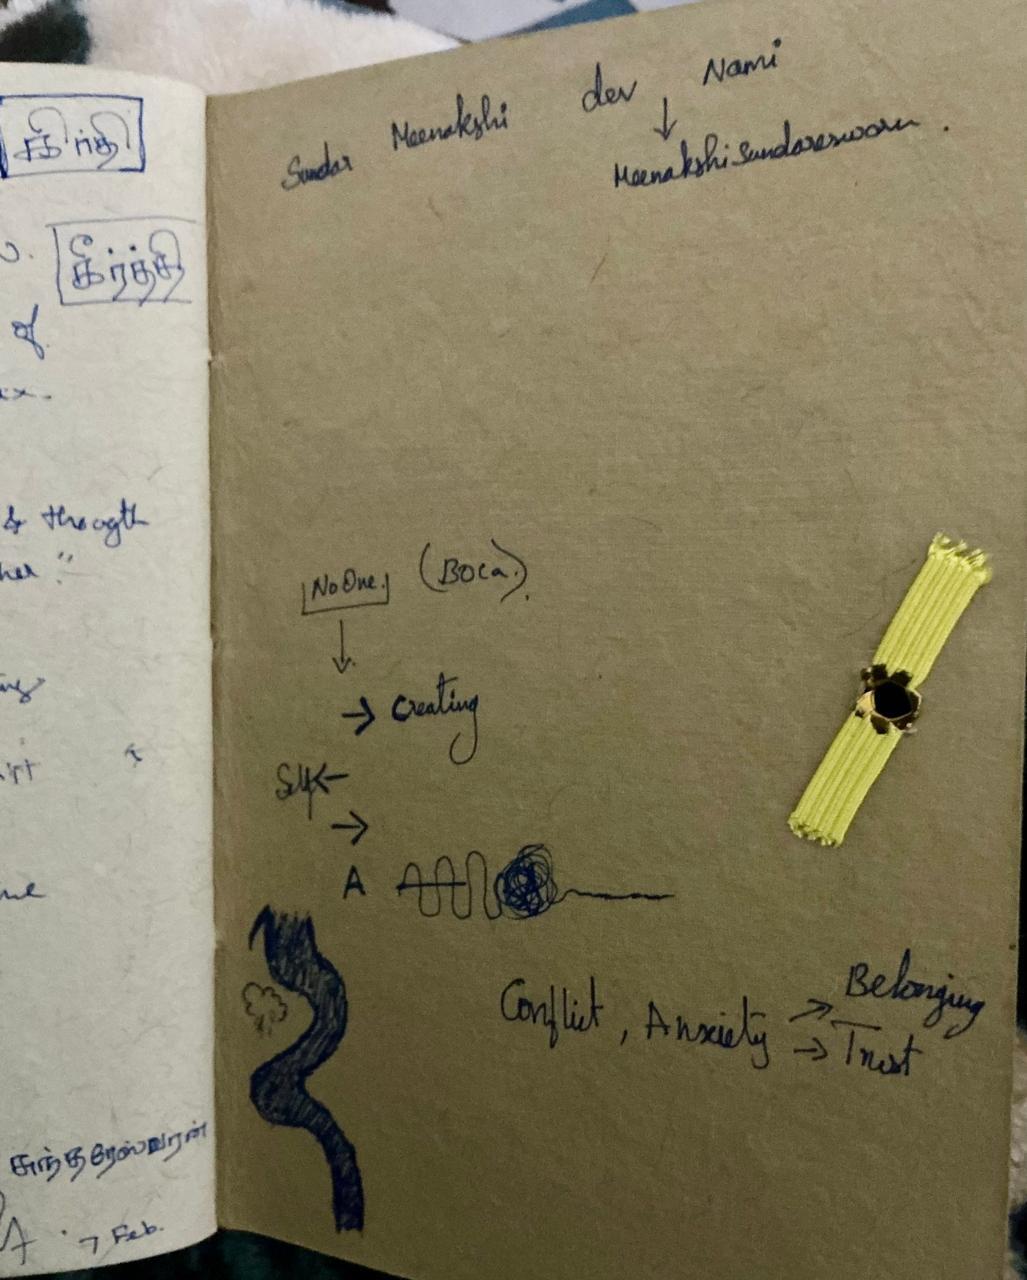 கீர்த்தி
கீர்த்தி
& thoogth
7 Feb.
சுந்தரேஸ்வரன்
Sundar Meenakshi dev Nami
↓
Meenakshi Sundareswaran.
No One. (Boca).
↓
→ Creating
Self ←
→
A
Conflict, Anxiety → Belonging
→ Trust